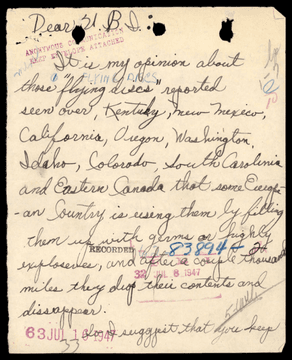 Dear F. B. I.
ANONYMOUS COMMUNICATION
KEEP ENVELOPE ATTACHED
It is my opinion about
"FLYING DISCS"
those flying discs reported
seen over, Kentucky, New Mexico,
California, Oregon, Washington
Idaho, Colorado, South Carolinia
and Eastern Canada that some Europe-
-an Country is useing them by filling
them up with germs or highly
RECORDED
83894-
explosives, and after a couple thousands
32 JUL 8 1947
miles they drop their contents and
dissappear.
63 JUL 1947
I also suggpst that you keep